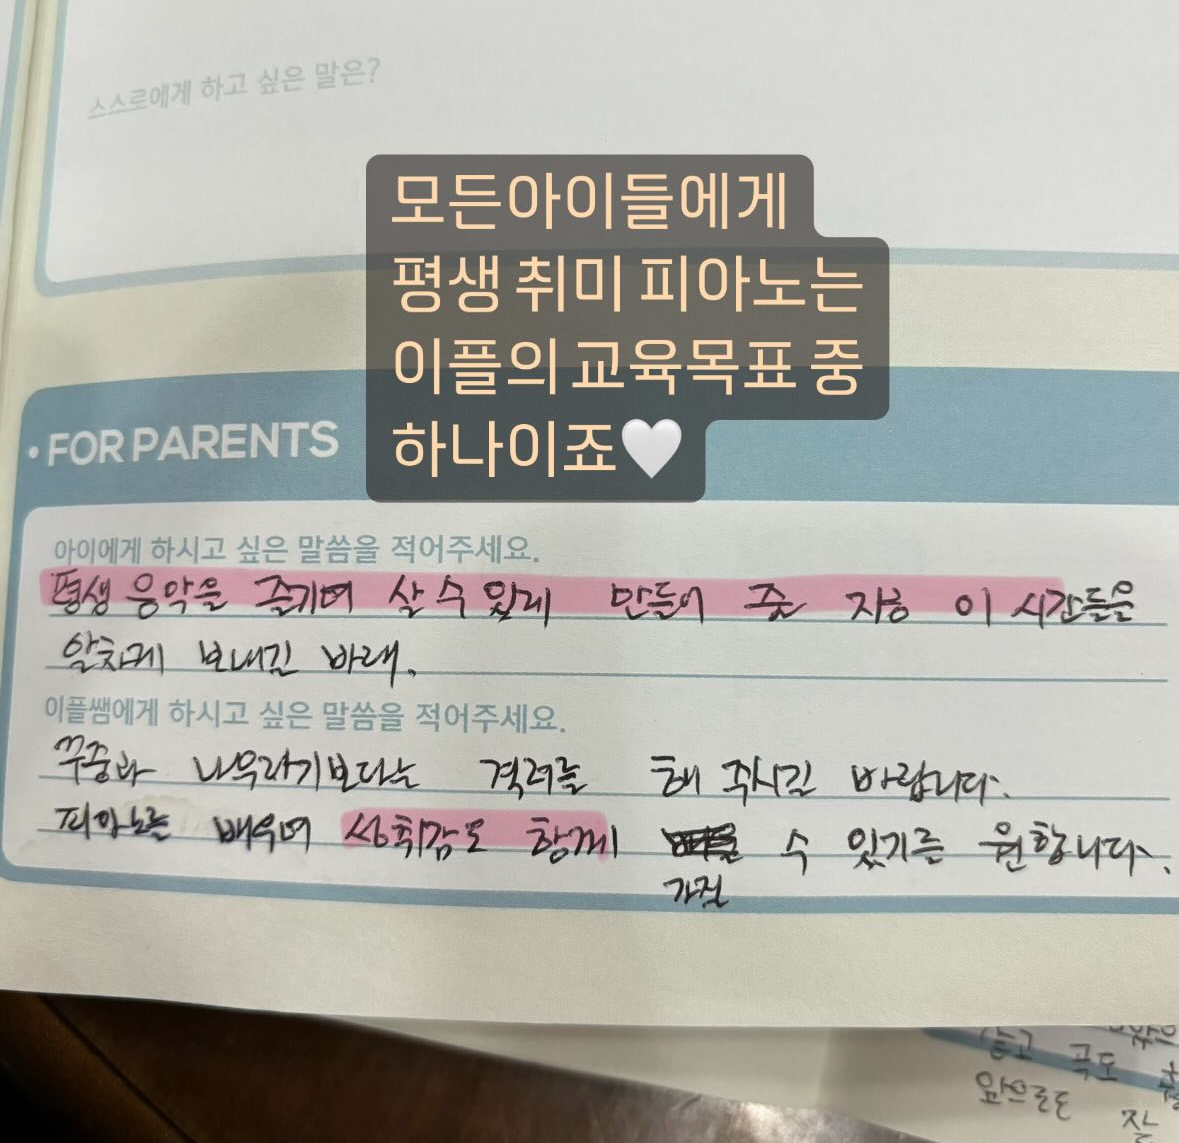 스스로에게 하고 싶은 말은?
모든아이들에게
평생 취미 피아노는
이플의 교육목표 중
하나이죠🤍
• FOR PARENTS
아이에게 하시고 싶은 말씀을 적어주세요.
평생 음악을 즐기며 살 수 있게 만들어 줄 지금 이 시간들을
알차게 보내길 바래.
이플쌤에게 하시고 싶은 말씀을 적어주세요.
꾸중과 나무라기보다는 격려를 해 주시길 바랍니다.
피아노를 배우며 성취감도 함께 수 있기를 원합니다.
가질
곡도
앞으로도